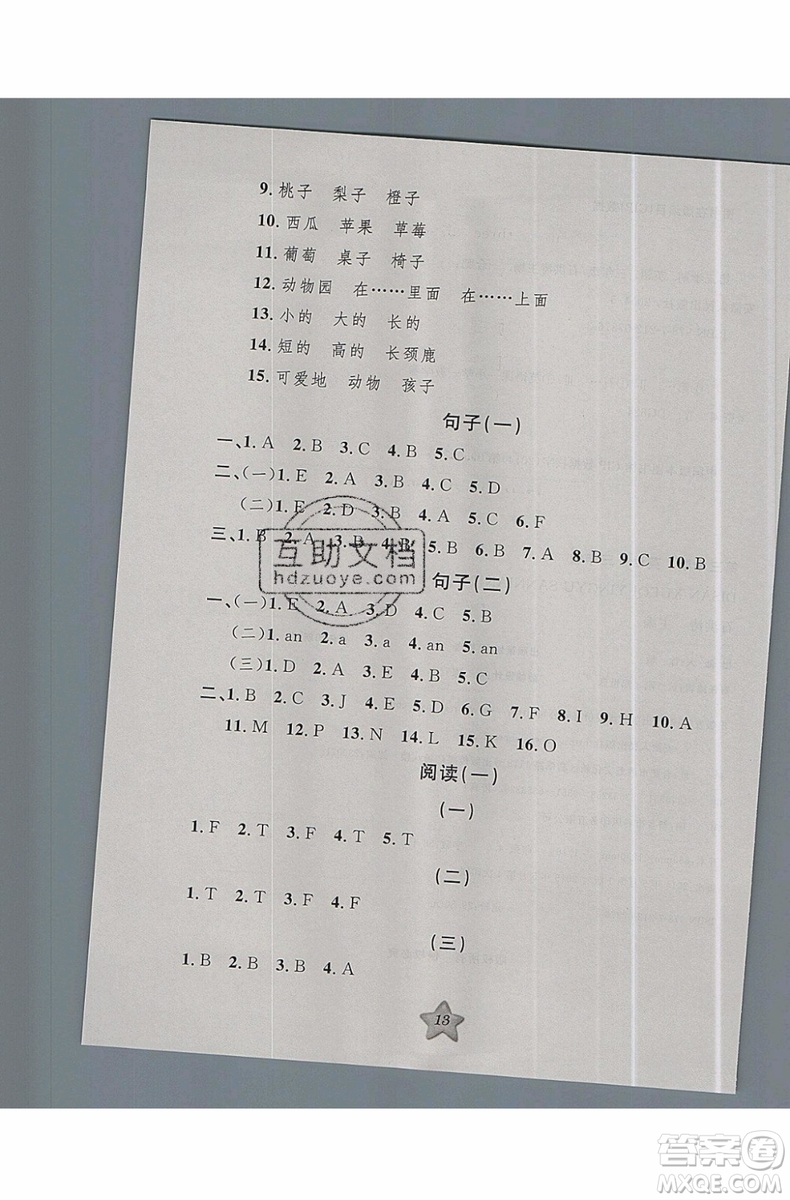 9. 桃子 梨子 橙子
10. 西瓜 苹果 草莓
11. 葡萄 桌子 椅子
12. 动物园 在……里面 在……上面
13. 小的 大的 长的
14. 短的 高的 长颈鹿
15. 可爱地 动物 孩子
句子(一)
一、1. A 2. B 3. C 4. B 5. C
二、(一)1. E 2. A 3. B 4. C 5. D
(二)1. E 2. D 3. B 4. A 5. C 6. F
三、1. B 2. A 3. B 4. B 5. B 6. B 7. A 8. B 9. C 10. B
互助文档
hdzuoye.com
句子(二)
一、(一)1. E 2. A 3. D 4. C 5. B
(二)1. an 2. a 3. a 4. an 5. an
(三)1. D 2. A 3. E 4. B 5. C
二、1. B 2. C 3. J 4. E 5. D 6. G 7. F 8. I 9. H 10. A
11. M 12. P 13. N 14. L 15. K 16. O
阅读(一)
(一)
1. F 2. T 3. F 4. T 5. T
(二)
1. T 2. T 3. F 4. F
(三)
1. B 2. B 3. B 4. A
13
答案圈
MXQE.COM